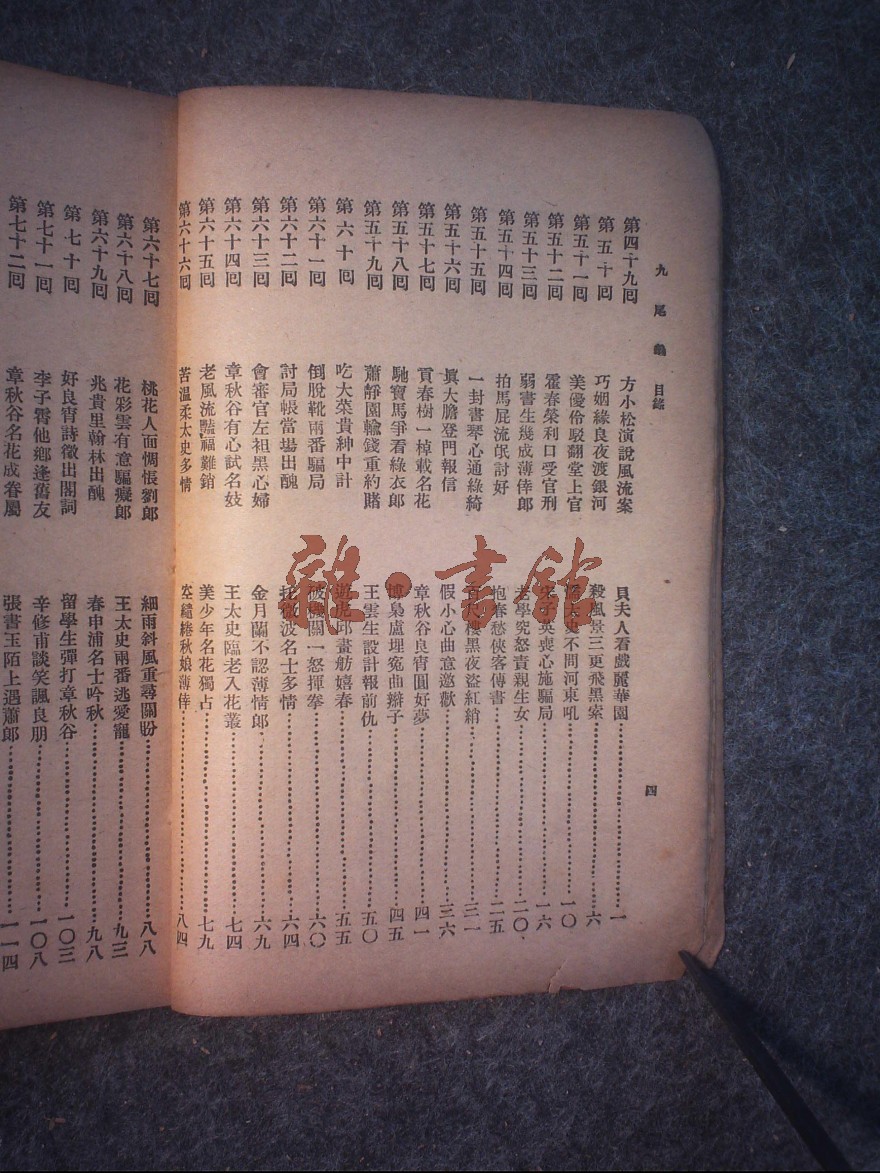 九尾龜 目錄
四
第四十九囘 方小松演說風流案 貝夫人看戲麗華園 一
第五十囘 巧姻緣良夜渡銀河 殺風景三更飛黑索 六
第五十一囘 美優伶駁翻堂上官 太史不問河東吼 一〇
第五十二囘 霍春榮利口受官刑 子英喪心施騙局 一六
第五十三囘 弱書生幾成薄倖郎 老學究怒責親生女 二〇
第五十四囘 拍馬屁流氓討好 抱春愁俠客傳書 二五
第五十五囘 一封書琴心通綠綺 百尺樓黑夜盜紅綃 三一
第五十六囘 眞大膽登門報信 假小心曲意邀歡 三六
第五十七囘 貢春樹一棹載名花 章秋谷良宵圓好夢 四一
第五十八囘 馳寶馬爭看綠衣郎 博梟盧埋寃曲辮子 四五
第五十九囘 蕭靜園輸錢重約賭 王雲生設計報前仇 五〇
第六十囘 吃大菜貴紳中計 遊虎邱畫舫嬉春 五五
第六十一囘 倒脫靴兩番騙局 破機關一怒揮拳 六〇
第六十二囘 討局帳當場出醜 托微波名士多情 六四
第六十三囘 會審官左袒黑心婦 金月蘭不認薄情郎 六九
第六十四囘 章秋谷有心試名妓 王太史臨老入花叢 七四
第六十五囘 老風流豔福難銷 美少年名花獨占 七九
第六十六囘 苦溫柔太史多情 空繾綣秋娘薄倖 八四
第六十七囘 桃花人面惆悵劉郎 細雨斜風重尋關盼 八八
第六十八囘 花彩雲有意騙癡郎 王太史兩番逃愛寵 九三
第六十九囘 兆貴里翰林出醜 春申浦名士吟秋 九八
第七十囘 好良宵詩徵出閣詞 留學生彈打章秋谷 一〇三
第七十一囘 李子霄他鄕逢舊友 辛修甫談笑諷良朋 一〇八
第七十二囘 章秋谷名花成眷屬 張書玉陌上遇蕭郎 一一四
雜·書館